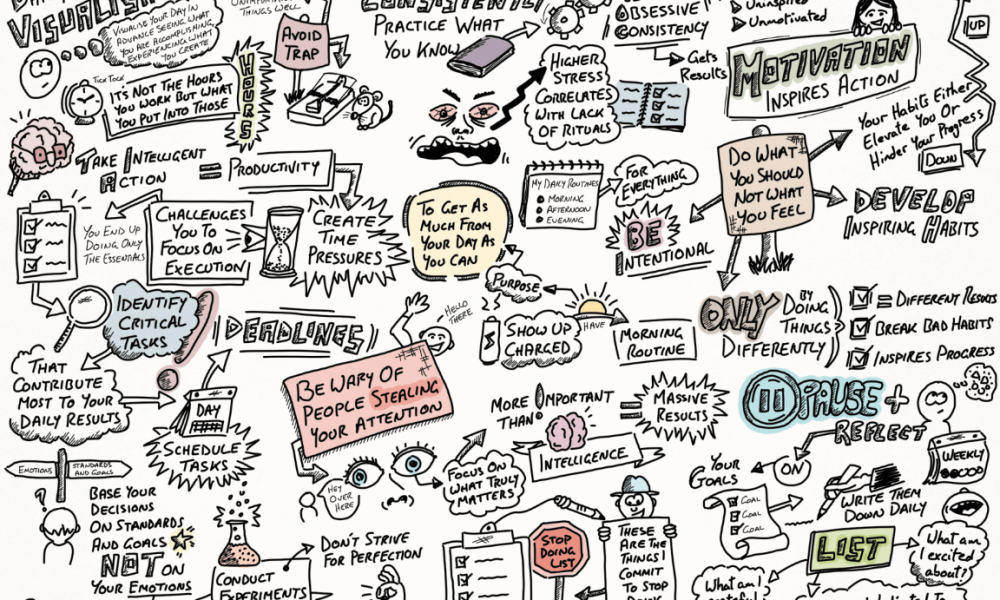 VISUALISE
VISUALISE YOUR DAY IN
ADVANCE SEEING WHAT
YOU ARE ACCOMPLISHING,
EXPERIENCING WHAT
YOU CREATE
THINGS WELL
AVOID
TRAP
CONSISTENTLY
PRACTICE WHAT
YOU KNOW
OBSESSIVE
CONSISTENCY
GETS
RESULTS
UNINSPIRED
UNMOTIVATED
MOTIVATION
INSPIRES ACTION
UP
YOUR HABITS EITHER
ELEVATE YOU OR
HINDER YOUR PROGRESS
DOWN
TICK TOCK
IT'S NOT THE HOURS
YOU WORK BUT WHAT
YOU PUT INTO THOSE
HOURS
HIGHER
STRESS
CORRELATES
WITH LACK
OF RITUALS
TAKE INTELLIGENT
ACTION
= PRODUCTIVITY
CHALLENGES
YOU TO
FOCUS ON
EXECUTION
CREATE
TIME
PRESSURES
YOU END UP
DOING ONLY
THE ESSENTIALS
TO GET AS
MUCH FROM
YOUR DAY AS
YOU CAN
MY DAILY ROUTINES
MORNING
AFTERNOON
EVENING
FOR
EVERYTHING
BE
INTENTIONAL
DO WHAT
YOU SHOULD
NOT WHAT
YOU FEEL
DEVELOP
INSPIRING HABITS
PURPOSE
SHOW UP
CHARGED
HAVE
MORNING
ROUTINE
ONLY
BY
DOING
THINGS
DIFFERENTLY
= DIFFERENT RESULTS
BREAK BAD HABITS
INSPIRES PROGRESS
IDENTIFY
CRITICAL
TASKS
THAT
CONTRIBUTE
MOST TO YOUR
DAILY RESULTS
DEADLINES
DAY
SCHEDULE
TASKS
HELLO
THERE
BE WARY OF
PEOPLE STEALING
YOUR ATTENTION
HEY
OVER
HERE
FOCUS ON
WHAT TRULY
MATTERS
MORE IMPORTANT
THAN
INTELLIGENCE
=
MASSIVE
RESULTS
PAUSE +
REFLECT
WEEKLY
ON
YOUR
GOALS
GOAL
GOAL
GOAL
WRITE THEM
DOWN DAILY
LIST
WHAT AM
I EXCITED
ABOUT?
WHAT AM I
EMOTIONS
STANDARDS
AND GOALS
BASE YOUR
DECISIONS
ON STANDARDS
AND GOALS
NOT ON
YOUR EMOTIONS
DON'T STRIVE
FOR PERFECTION
CONDUCT
EXPERIMENTS
STOP
DOING
LIST
THESE
ARE THE
THINGS I
COMMIT
TO STOP